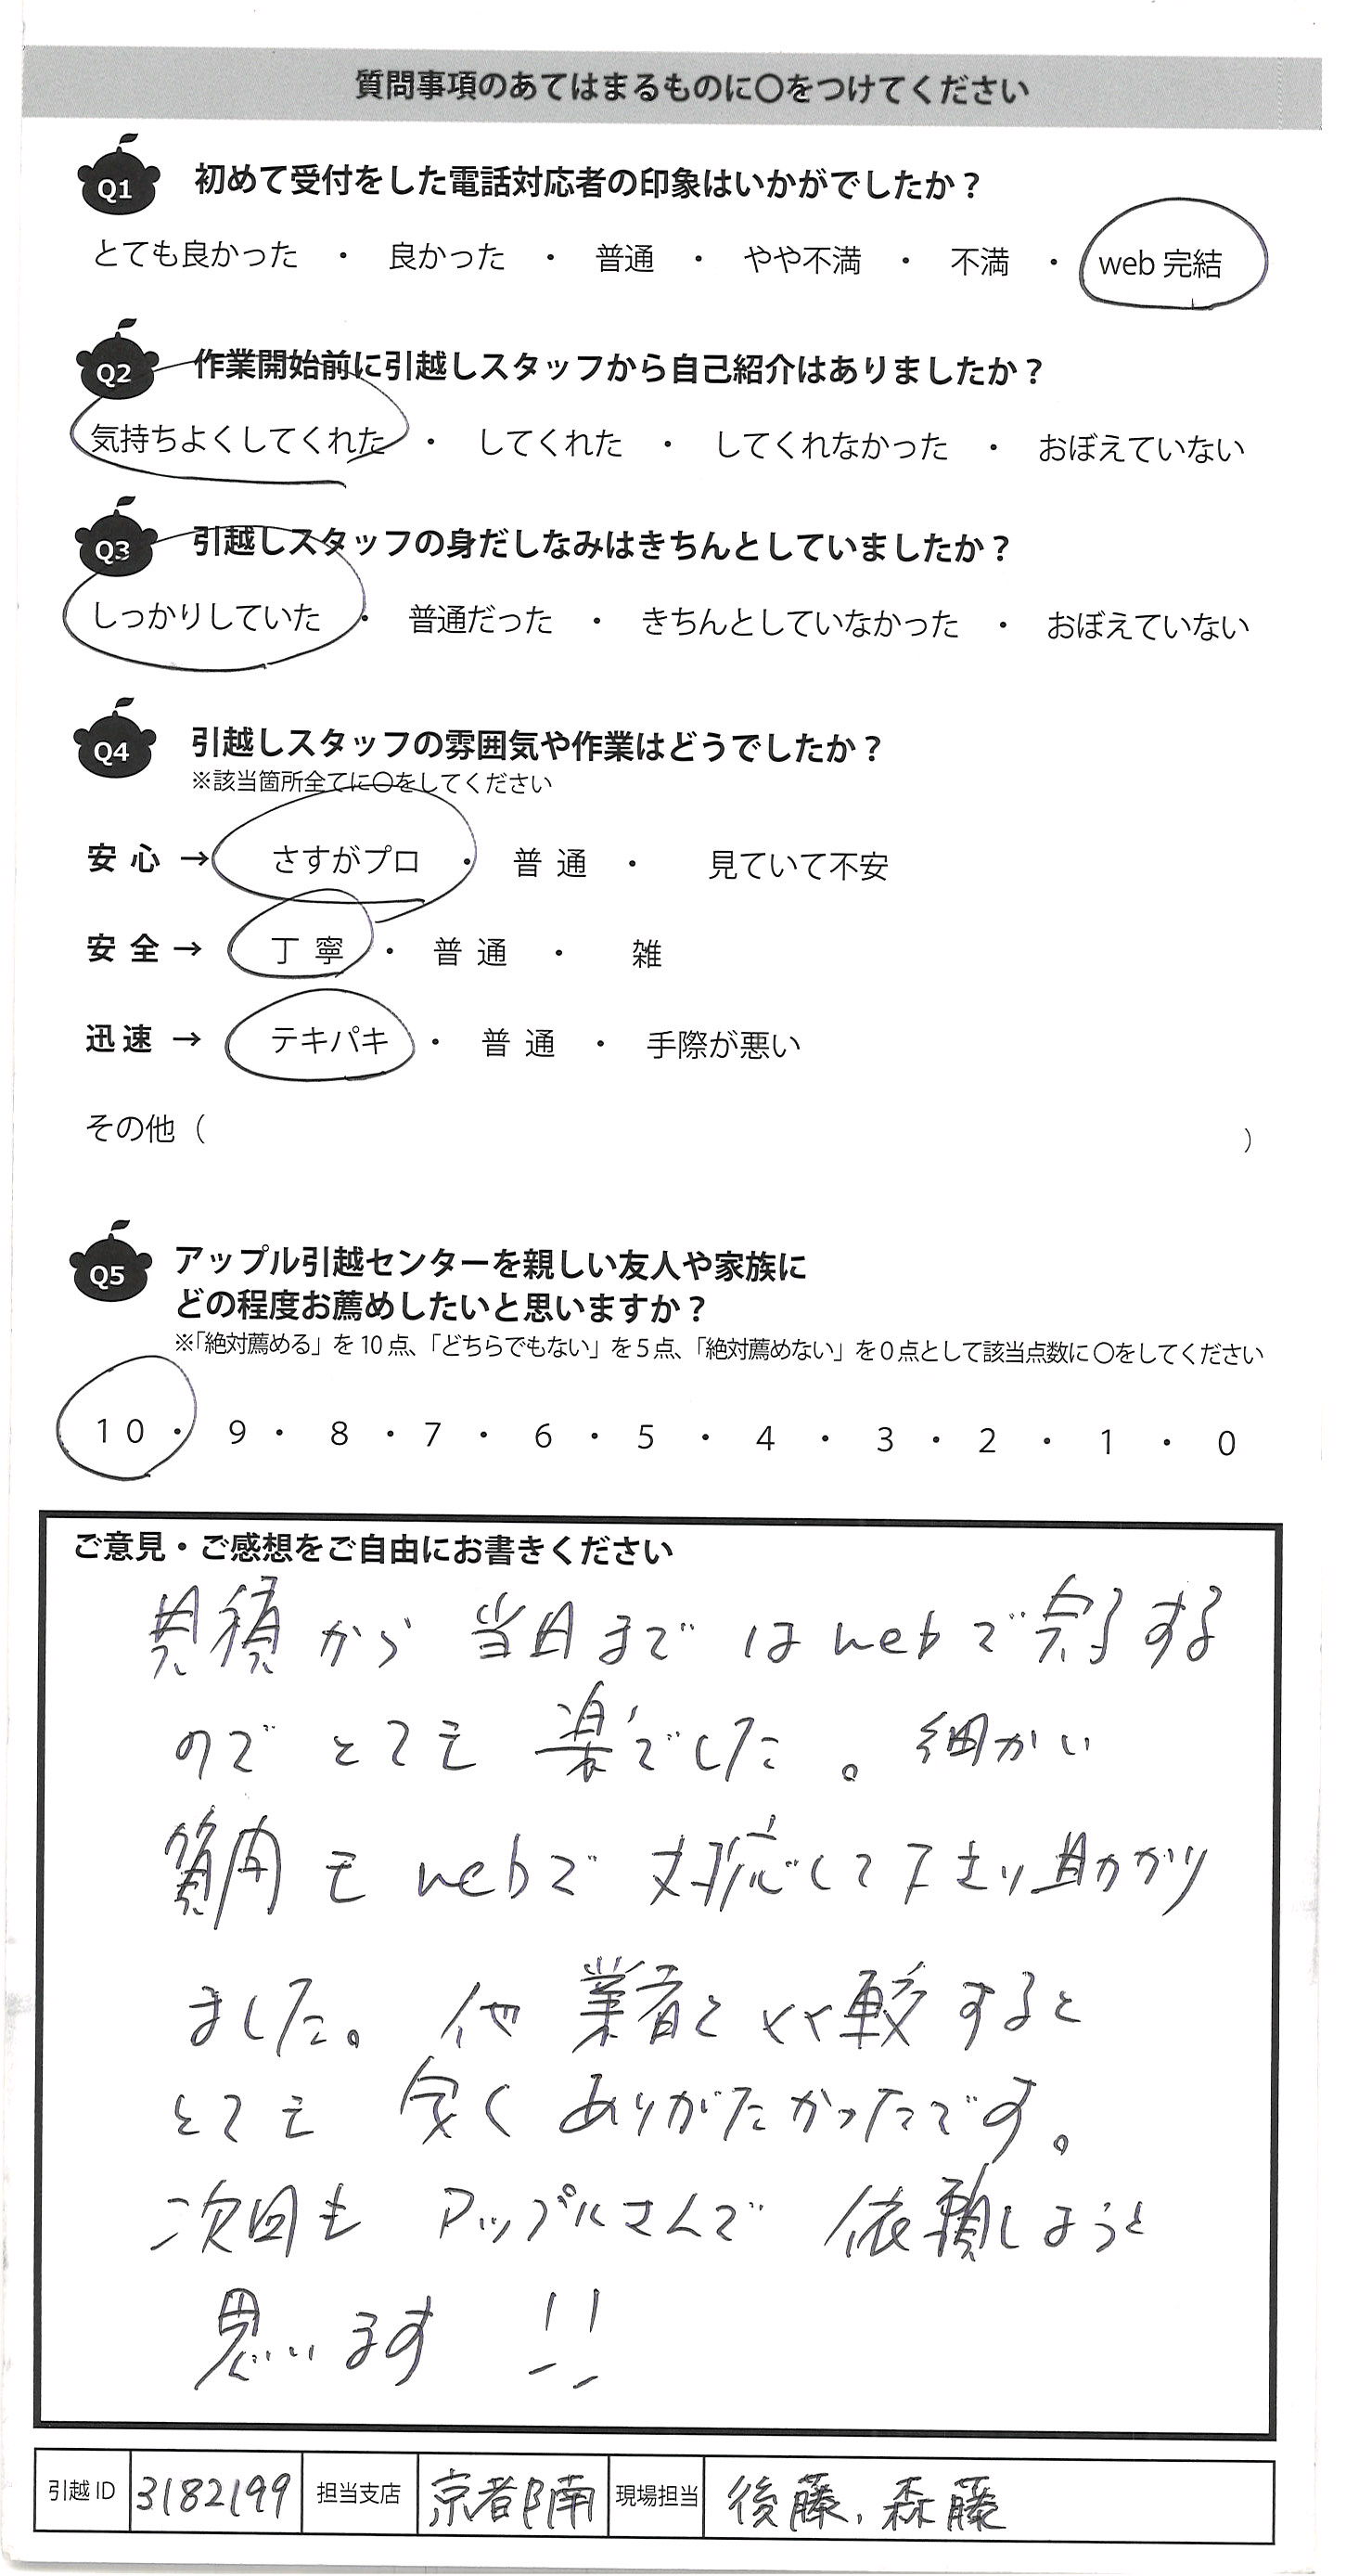 質問事項のあてはまるものに〇をつけてください
Q1 初めて受付をした電話対応者の印象はいかがでしたか？
とても良かった ・ 良かった ・ 普通 ・ やや不満 ・ 不満 ・ web 完結
Q2 作業開始前に引越しスタッフから自己紹介はありましたか？
気持ちよくしてくれた ・ してくれた ・ してくれなかった ・ おぼえていない
Q3 引越しスタッフの身だしなみはきちんとしていましたか？
しっかりしていた ・ 普通だった ・ きちんとしていなかった ・ おぼえていない
Q4 引越しスタッフの雰囲気や作業はどうでしたか？
※該当箇所全てに〇をしてください
安心 → さすがプロ ・ 普通 ・ 見ていて不安
安全 → 丁寧 ・ 普通 ・ 雑
迅速 → テキパキ ・ 普通 ・ 手際が悪い
その他（ ）
Q5 アップル引越センターを親しい友人や家族に
どの程度お薦めしたいと思いますか？
※「絶対薦める」を 10 点、「どちらでもない」を 5 点、「絶対薦めない」を 0 点として該当点数に 〇をしてください
10 ・ 9 ・ 8 ・ 7 ・ 6 ・ 5 ・ 4 ・ 3 ・ 2 ・ 1 ・ 0
ご意見・ご感想をご自由にお書きください
見積から当日まではwebで完了する
のでとても楽でした。細かい
質問もwebで対応して下さり助かり
ました。他業者と比較すると
とても安くありがたかったです。
次回もアップルさんで依頼しようと
思います!!
引越 ID 3182199 担当支店 京都南 現場担当 後藤、森藤